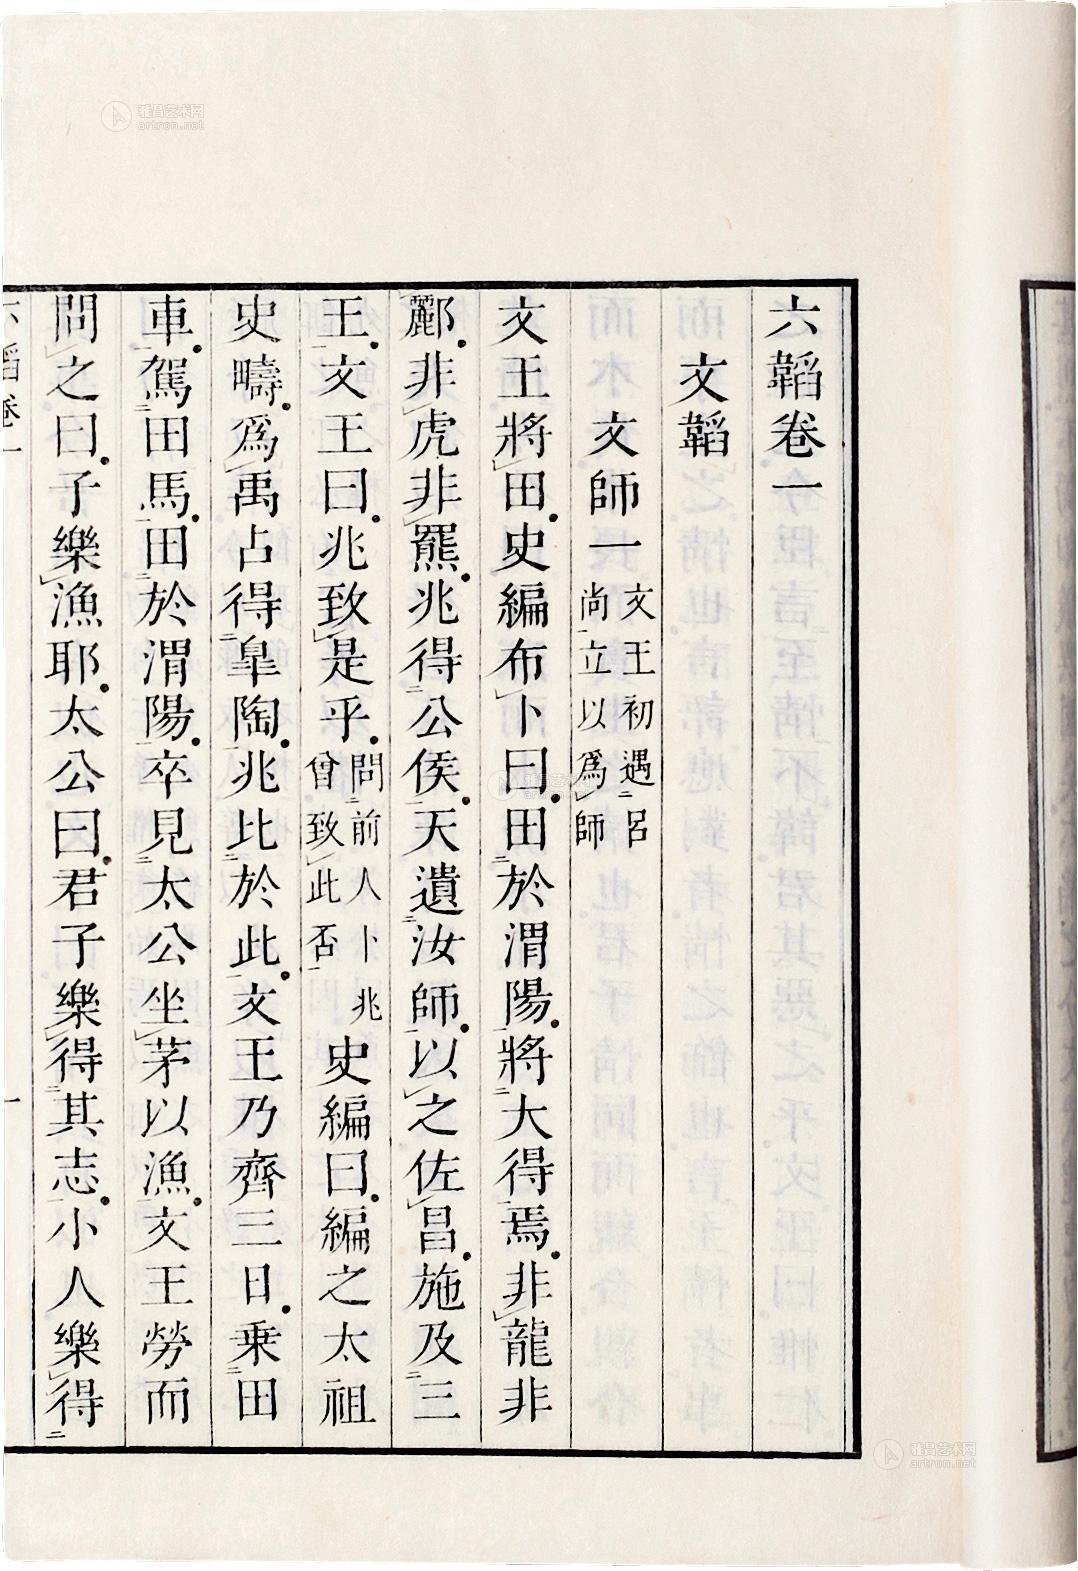 六韜卷一
文韜
文師一 文王初遇呂尚立以爲師
文王將田史編布卜曰田於渭陽將大得焉非龍非
彲非虎非羆兆得公侯天遺汝師以之佐昌施及三
王文王曰兆致是乎問前人卜兆曾致此否史編曰編之太祖
史疇爲禹占得皐陶兆比於此文王乃齊三日乗田
車駕田馬田於渭陽卒見太公坐茅以漁文王勞而
問之曰子樂漁耶太公曰君子樂得其志小人樂得
六韜卷一 一
雅昌艺术网
artron.net
雅昌艺术网
artron.net